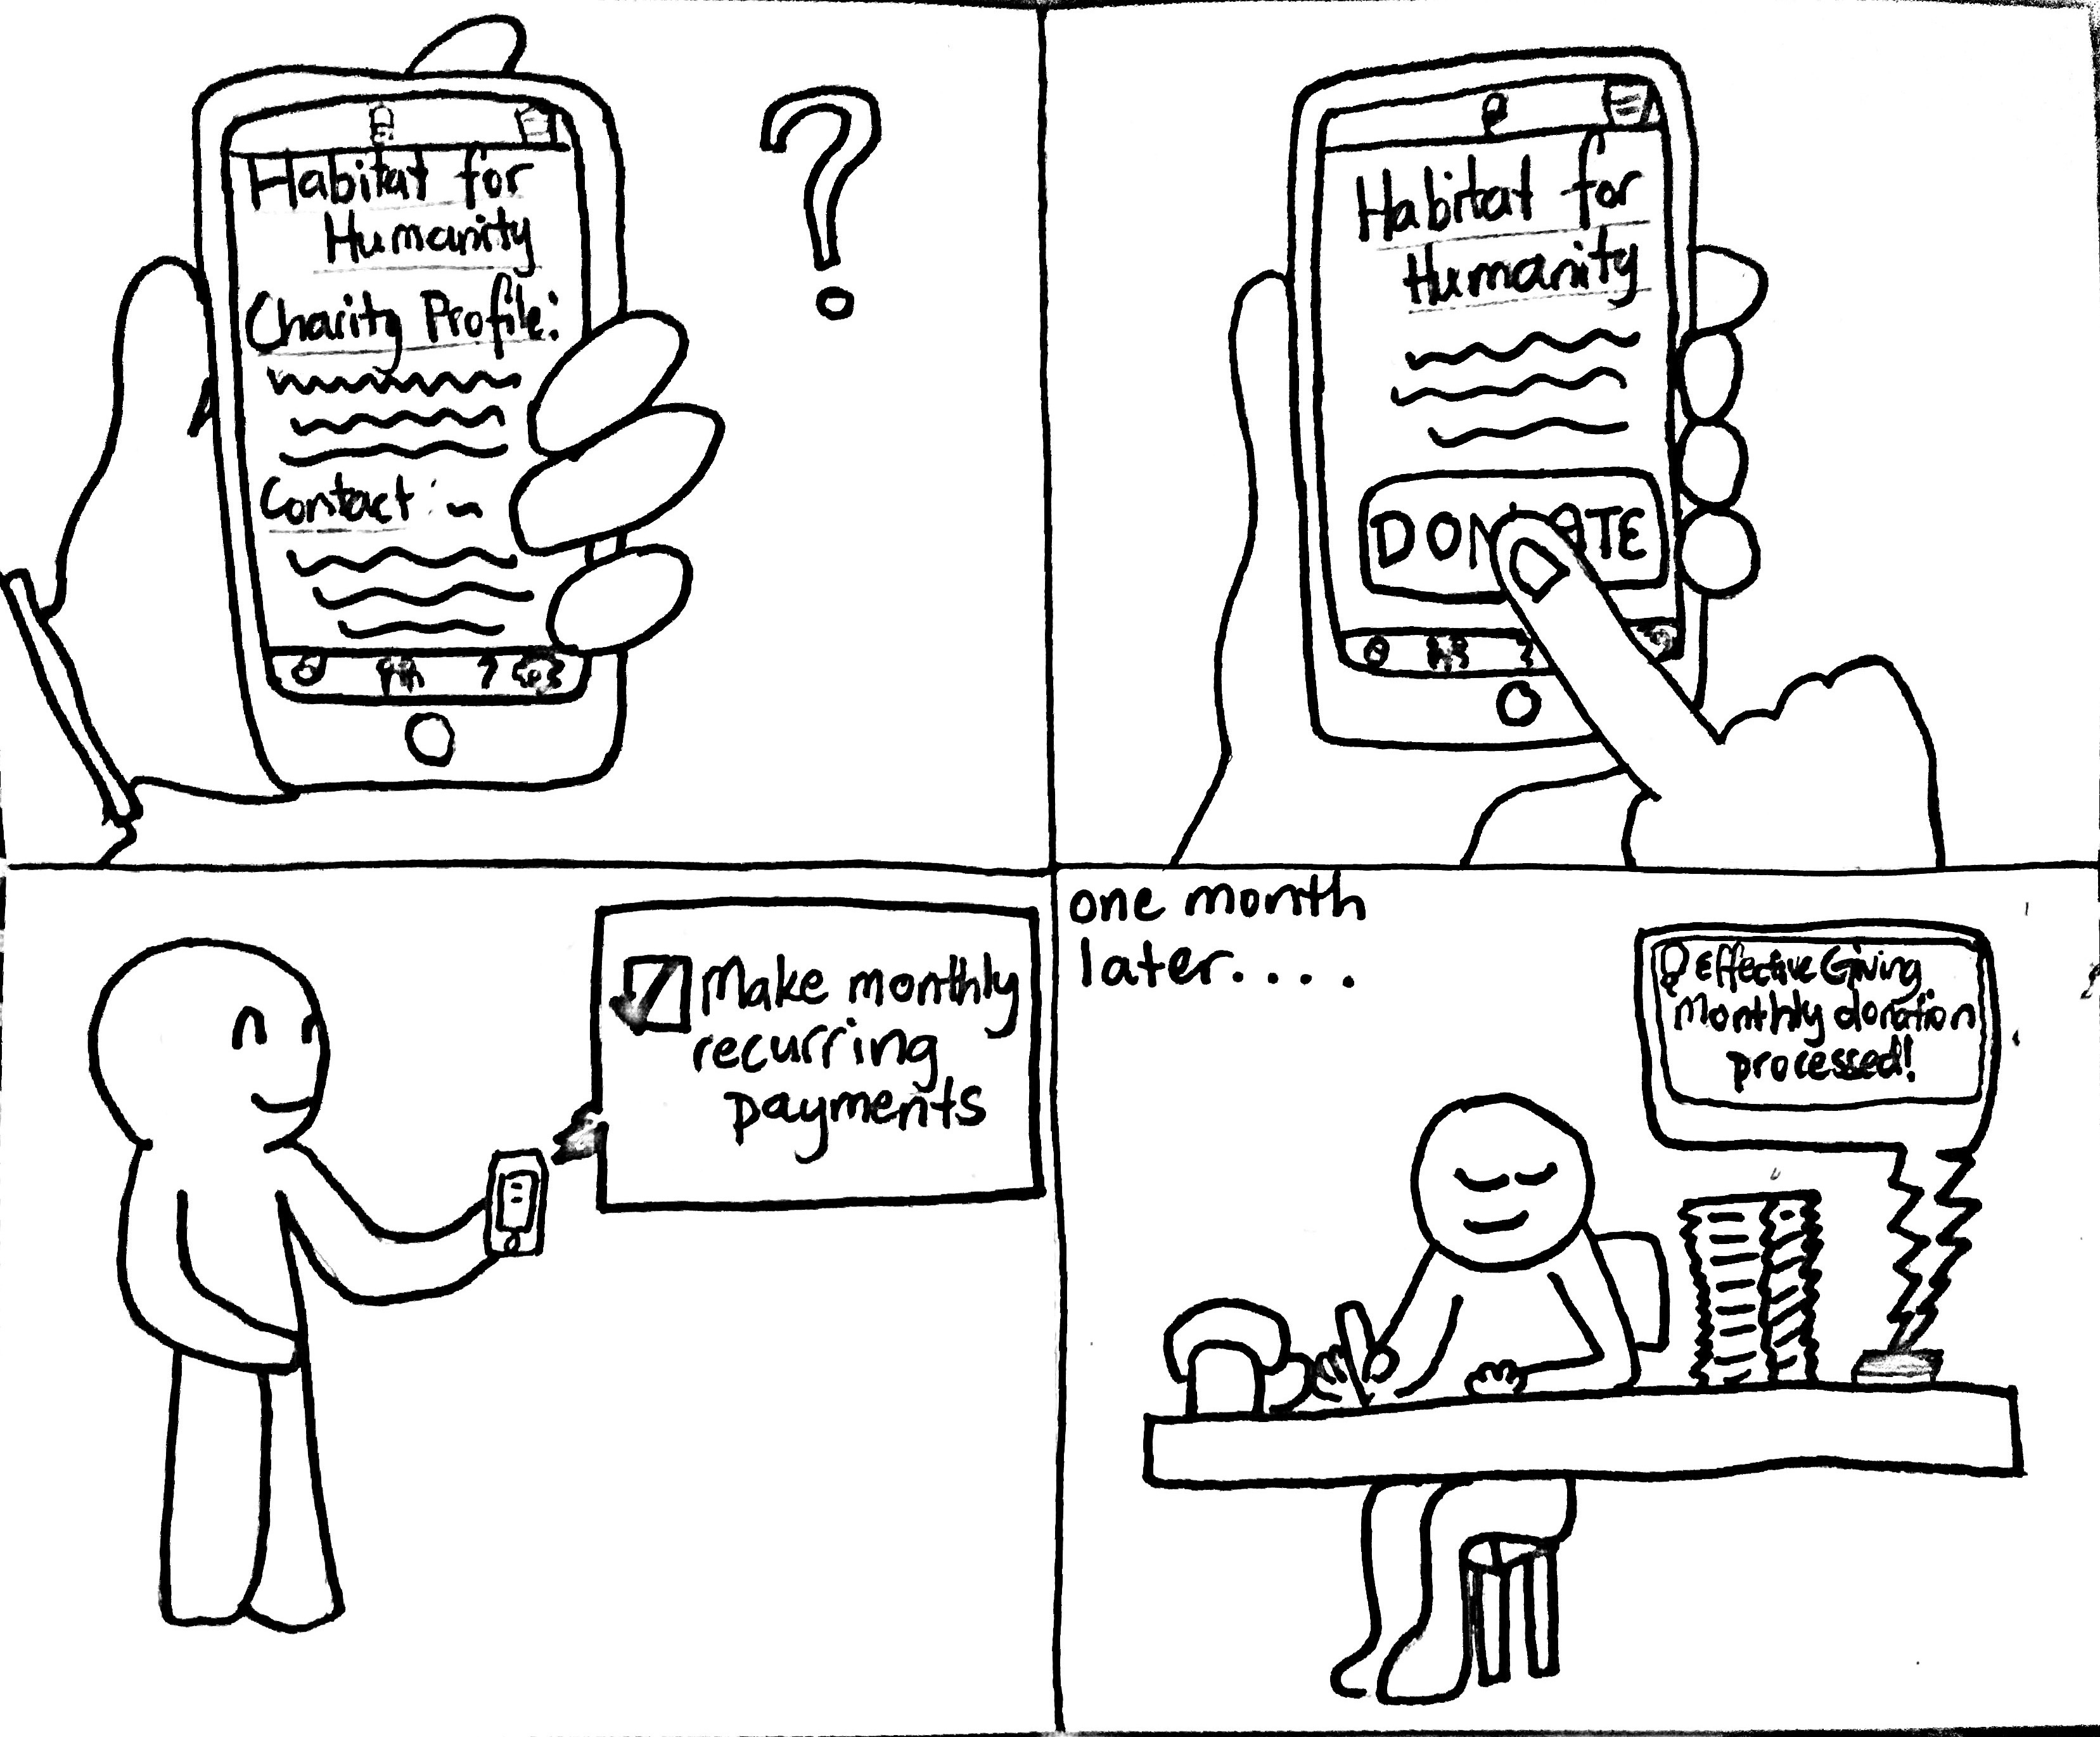 Habitat for
Humanity
Charity Profile:
Contact:
?
Habitat for
Humanity
DON ATE
Make monthly
recurring
payments
one month
later....
Effective Giving
Monthly donation
processed!